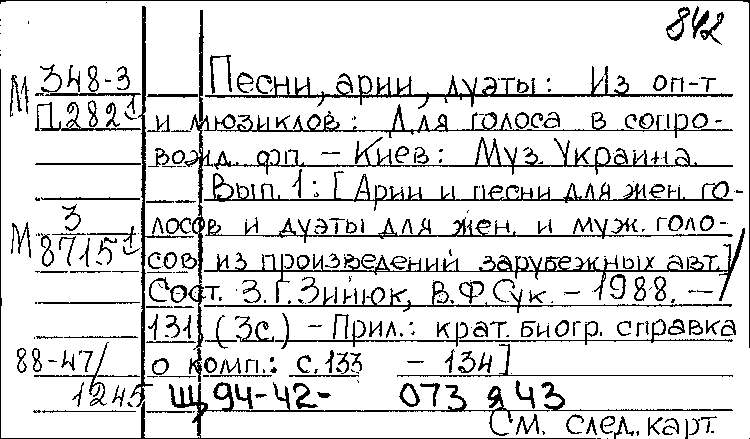 842
М 348-3 Песни, арии, дуэты: Из оп-т
П.282¹ и мюзиклов: Для голоса в сопро-
вожд. фп. – Киев: Муз. Украина.
Вып. 1: [Арии и песни для жен. го-
М 3 лосов и дуэты для жен. и муж. голо-
8715¹ сов из произведений зарубежных авт.]
Сост. З.Г.Зинюк, В.Ф.Сук. – 1988. –
131, (3с.) – Прил.: крат. биогр. справка
88-47/ о комп.: с.133 – 134]
1245 Щ 94-42- 073 я 43
См. след. карт.